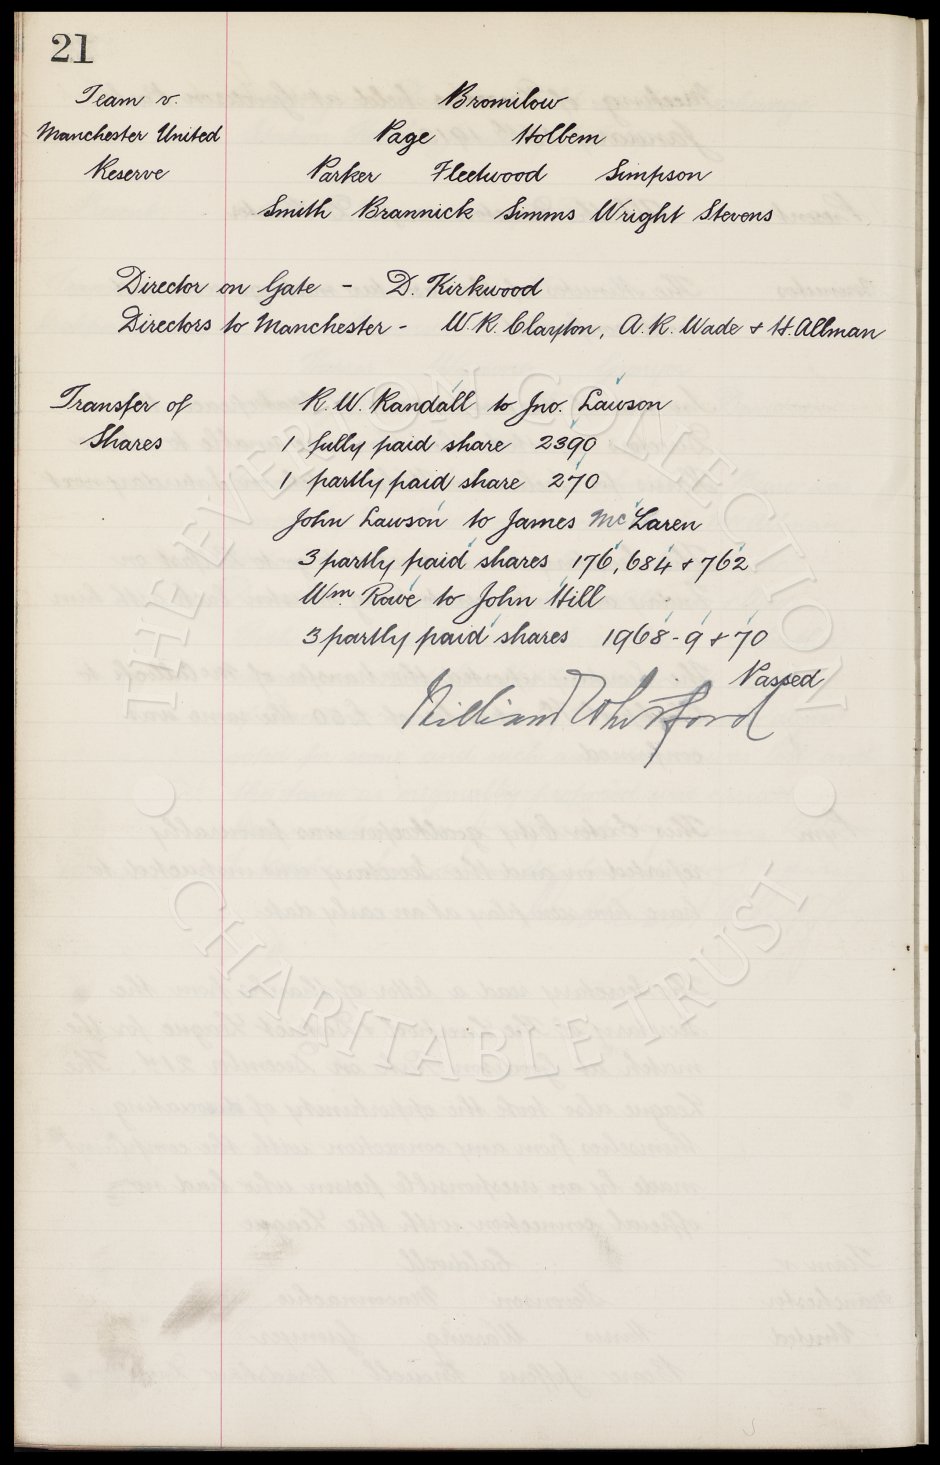 21
Team v. Bromilow
Manchester United Page Holbem
Reserve Parker Fleetwood Simpson
Smith Brannick Simms Wright Stevens
Director on Gate - D. Kirkwood
Directors to Manchester - W. R. Clayton, A. R. Wade + H. Allman
Transfer of R. W. Randall to Jno. Lawson
Shares 1 fully paid share 2390
1 partly paid share 270
John Lawson to James McLaren
3 partly paid shares 176, 684 + 762
Wm. Rowe to John Hill
3 partly paid shares 1968-9 + 70
Passed
William Whitford
THE EVERTON COLLECTION
CHARITABLE TRUST